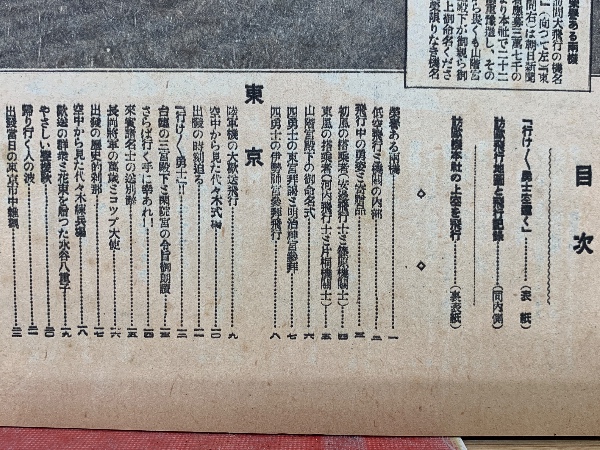 譽ある兩機
訪問大飛行の機名
』(向つて左)『東
間右)は朝日新聞
懸賞應募三萬七千の
より本社で二十二
目次
『行け〱勇士空轟く』……(表紙)
訪歐飛行地圖と飛行記錄……(同内側)
訪歐機本社の上空を飛行……(裏表紙)
榮譽ある兩機……一
低空飛行と機關の内部……二
飛行中の勇姿と……三
初風の搭乘者(安邊飛行士と篠原機關士)……四
東風の搭乘者(河内飛行士と片桐機關士)……五
山階宮殿下の御命名式……六
四勇士の東宮拜謁と明治神宮參拜……七
四勇士の伊勢神宮參拜飛行……八
東京
陸軍機の大歡送飛行……九
空中から見た代々木式場……一〇
出發の時刻迫る……一一
『行け〱勇士』……一二
台臨の三宮殿下と閑院宮の令旨御朗讀……一三
さらば行く手に幸あれ!……一四
來賓諸名士の送別辭……一五
長岡將軍の萬歲とコップ大使……一六
出發の歷史的刹那……一七
空中から見た代々木練兵場……一八
歡送の群衆と花束を贈つた水谷八重子……一九
やさしい……二〇
歸り行く人の波……二一
出發當日の東京市中雜觀……二二